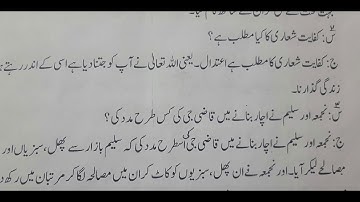 س: کفایت شعاری کا کیا مطلب ہے؟
ج: کفایت شعاری کا مطلب ہے اعتدال۔ یعنی اللہ تعالیٰ نے آپ کو جتنا دیا ہے اسی کے اندر رہتے
زندگی گذارنا۔
س: نجمعہ اور سلیم نے اچار بنانے میں قاضی جی کی کس طرح مدد کی؟
ج: نجمعہ اور سلیم نے اچار بنانے میں قاضی جی کی اسطرح مدد کی کہ سلیم بازار سے پھل، سبزیاں اور
مصالحے لیکر آیا۔ اور نجمعہ نے ان پھل، سبزیوں کو کاٹ کر ان میں مصالحہ لگا کر مرتبان میں رکھ د